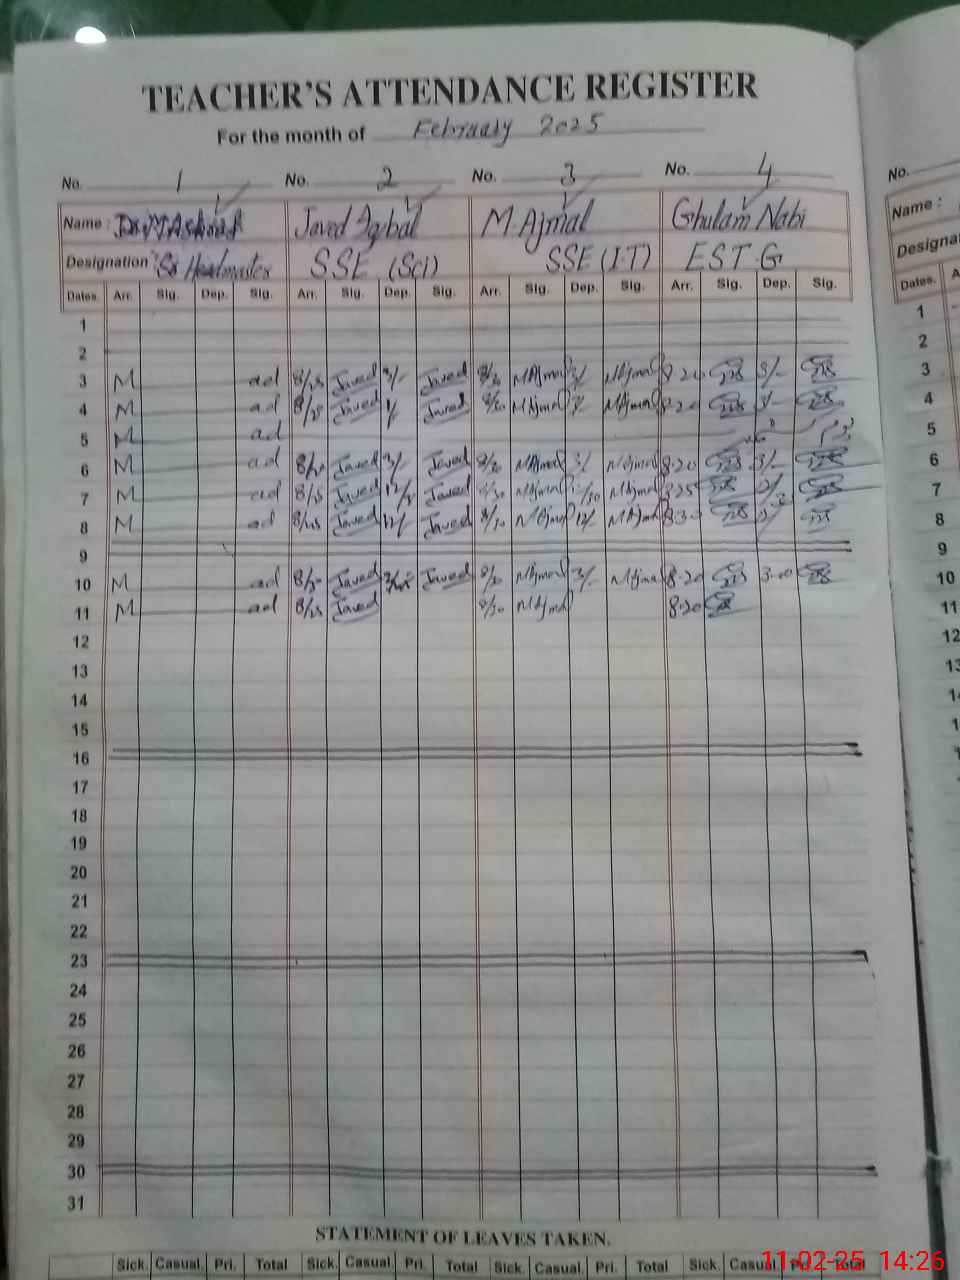 TEACHER'S ATTENDANCE REGISTER
For the month of February 2025
No. 1 No. 2 No. 3 No. 4 No.
Name : Dr. M Ashraf Javed Iqbal M. Ajmal Ghulam Nabi Name :
Designation Sr Headmaster SSE (Sci) SSE (I.T) EST. G
Dates. Arr. Sig. Dep. Sig. Arr. Sig. Dep. Sig. Arr. Sig. Dep. Sig. Arr. Sig. Dep. Sig. Dates.
1 1
2 2
3 M ad Javed 3/- Javed M Ajmal 3/ M Ajmal 8-20 3/- 3
4 M ad Javed Javed M Ajmal M Ajmal 8-20 4
5 M ad 5
6 M ad Javed 3/- Javed M Ajmal 3/ M Ajmal 8-20 3/- 6
7 M ad Javed Javed M Ajmal M Ajmal 8-25 7
8 M ad Javed 12/- Javed M Ajmal 12/ M Ajmal 8-30 8
9 9
10 M ad Javed Javed M Ajmal 3/- M Ajmal 8-20 3-00 10
11 M ad Javed M Ajmal 8-20 11
12 12
13 13
14
15
16
17
18
19
20
21
22
23
24
25
26
27
28
29
30
31
STATEMENT OF LEAVES TAKEN.
Sick. Casual. Pri. Total Sick. Casual. Pri. Total Sick. Casual. Pri. Total Sick. Casual. Pri. Total
11-02-25 14:26